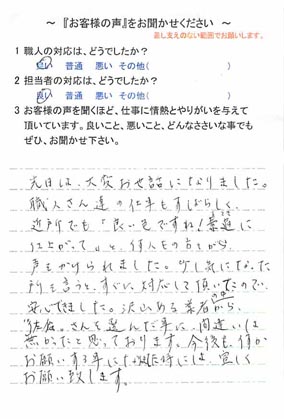 ～ 『お客様の声』をお聞かせください ～
差し支えのない範囲でお願いします。
1 職人の対応は、どうでしたか？
良い 普通 悪い その他( )
2 担当者の対応は、どうでしたか？
良い 普通 悪い その他( )
3 お客様の声を聞くほど、仕事に情熱とやりがいを与えて
頂いています。良いこと、悪いこと、どんなささいな事でも
ぜひ、お聞かせ下さい。
先日は、大変お世話になりました。
職人さん達の仕事もすばらしく、
近所でも「良い色ですね！素適に
仕上がって」と、何人もの方から
声をかけられました。少し気になった
所も言うと、すぐに対応して頂いたので、
安心できました。沢山ある業者の中から、
さんを選んだ事に、間違いは
無かったと思っております。今後も、何か
お願いする事になった時には、宜しく
お願い致します。